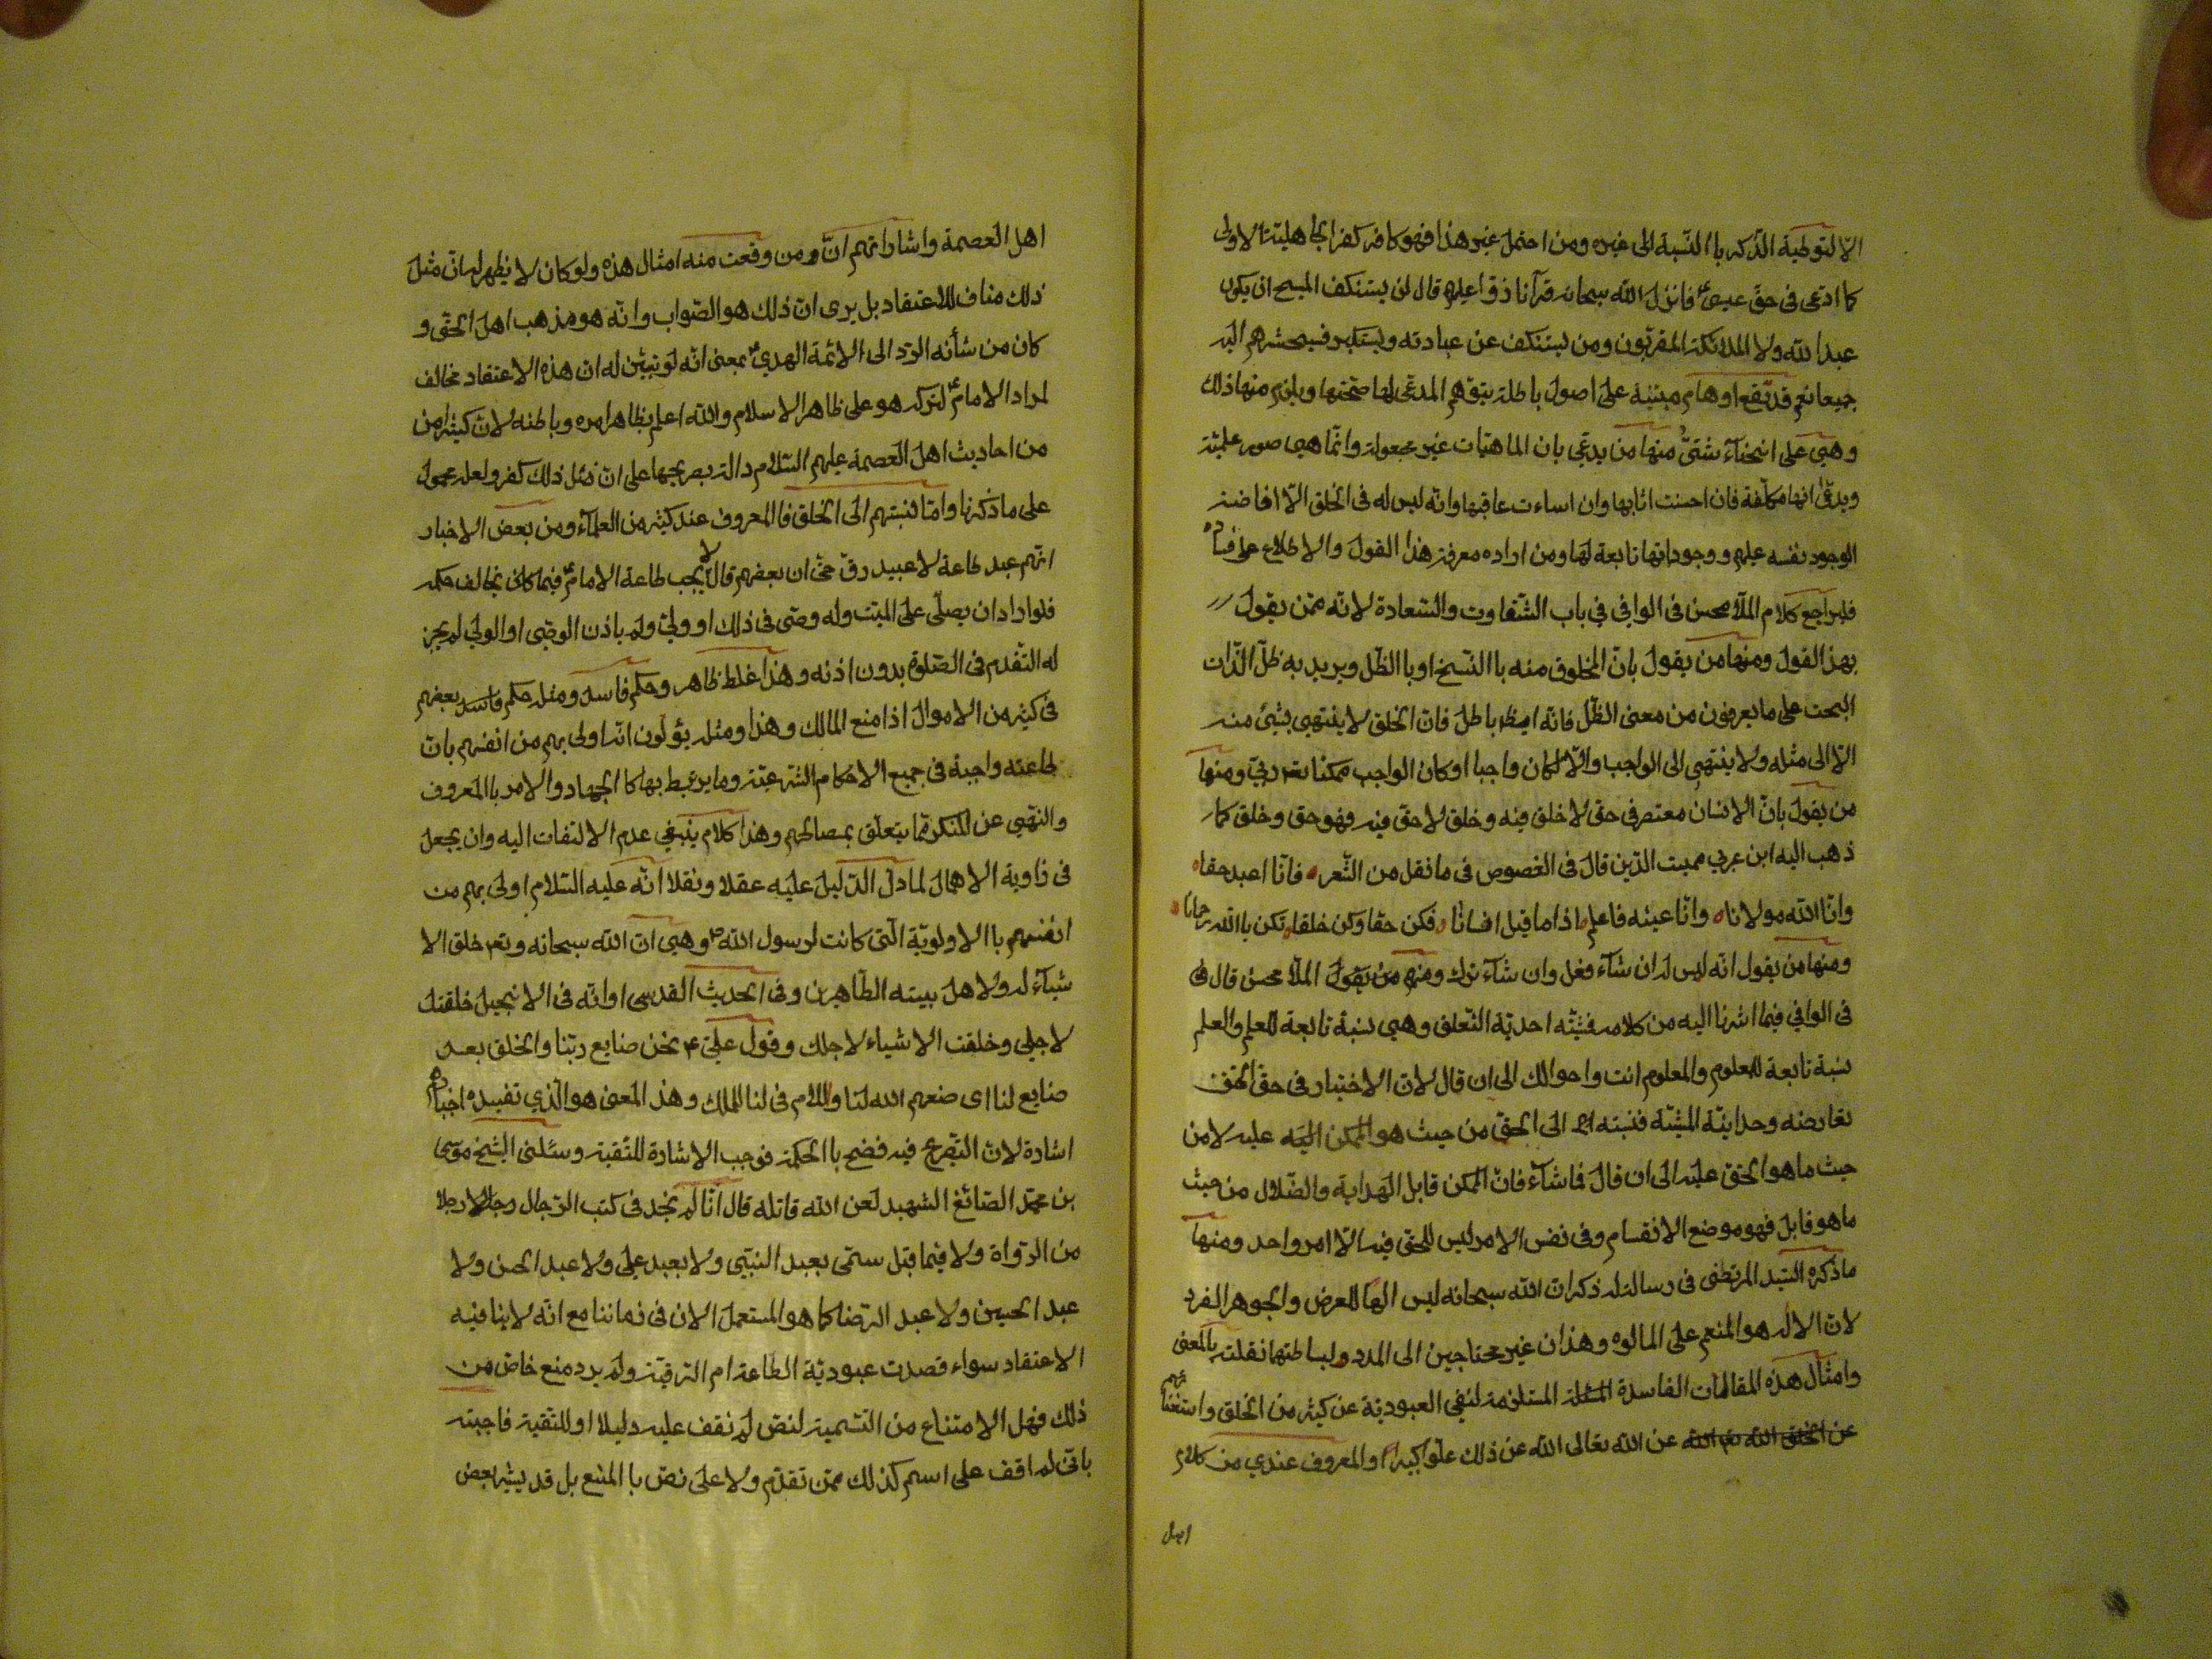 الّا لتوطية الذكر باالنّسبة الى غيره ومن احتمل غير هذا فهو كافر كفر الجاهلية الاولى
كما ادّعى فى حق عيسى ع فانزل الله سبحانه قرآنا ردّا عليهم قال لن يستنكف المسيح ان يكون
عبدا لله ولا الملائكة المقربون ومن يستنكف عن عبادته ويستكبر فسيحشرهم اليه
جميعا نعم قد تقع اوهام مبتنية على اصول باطلة يتوهم المدعى لها صحتها ويلزم منها ذلك
وهى على انحنآء شتىّ منها من يدعى بان الماهيات غير مجعولة وانّما هى صور علميّة
ويدعى انها مكلّفة فان احسنت اثابها وان اساءت عاقبها وانّه ليس له فى الخلق الّا افاضة
الوجود نفسه عليهم ووجوداتها تابعة لها ومن اراده معرفة هذا القول والاطلاع على فساده
فليراجع كلام الملّا محسن فى الوافي في باب الشّقاوت والسّعادة لانّه ممّن يقول
بهذ القول ومنها من يقول بانّ المخلوق منه باالنّسخ او باالظّل ويريد به ظلّ الذّات
البحت على ما يعرفون من معنى الظّل فانّه ايضا باطل فانّ الخلق لا ينتهى بشئ منه
الّا الى مثله ولا ينتهى الى الواجب والّا لكان واجبا او كان الواجب ممكنا تعه ربّي ومنها
من يقول بانّ الانسان معتصر فى حق لا خلق فيه وخلق لا حق فيه فهو حق وخلق كما
ذهب اليه ابن عربي مميت الدّين قال فى الفصوص فى ما نقل من الشّعر فانّا اعبد حقا
وانّا الله مولانا وانّا عينه فاعلم اذا ما قيل انسانا فكن حقا وكن خلقا تكن باالله رحمانا
ومنها من يقول انّه ليس له ان شآء فعل وان شآء ترك ومنهم من يقول الملّا محسن قال فى
فى الوافي فيما اشرنا اليه من كلامه فمشيّته احديّة التّعلق وهي نسبة تابعة للعلم والعلم
نسبة تابعة للمعلوم والمعلوم انت واحوالك الى ان قال لانّ الاختيار فى حق الحق
تعارضه وحدانيّة المشيّة فنسبته الى الحقّ من حيث هو الممكن عليه لا من
حيث ما هو الحق عليه الى ان قال فما شآء فانّ الممكن قابل الهداية والضّلال من حيث
ما هو قابل فهو موضع الانقسام وفى نفس الامر ليس للحق فيه الّا امر واحد ومنها
ما ذكره السّيد المرتضى فى رسالة له ذكر انّ الله سبحانه ليس الها للعرض والجوهر الفرد
لانّ الاله هو المنعم على المالوه وهذان غير محتاجين الى المدد ولبساطتهما نقلته بالمعنى
وامثال هذه المقالات الفاسدة المستلزمة لنفى العبوديّة عن كثير من الخلق واستغنائهم
عن الله تعالى الله عن ذلك علوّا كبيرا والمعروف عندي من كلام
اهل
اهل العصمة واشاراتهم انّ من وقعت منه امثال هذه ولو كان لا يظهر له انّ مثل
ذلك مناف للاعتقاد بل يرى انّ ذلك هو الصّواب وانّه هو مذهب اهل الحقّ و
كان من شأنه الرّد الى الائمة الهدي ع بمعنى انّه لو تبيّن له ان هذه الاعتقاد مخالف
لمراد الامام ع لتركه هو على ظاهر الاسلام والله اعلم بظاهر امره وباطنه لانّ كثيرا من
من احاديث اهل العصمة عليهم السّلام دالة بصريحها على انّ مثل ذلك كفر ولعله محمول
على ما ذكرنا وامّا نسبتهم الى الخلق فالمعروف عند كثير من العلمآء ومن بعض الاخبار
انهم عبد طاعة لا عبيد رقّ حتّى ان بعضهم قال لا يجب طاعة الامام ع فيما كان يخالف حكمه
فلو اراد ان يصلّي على الميت وله وصى فى ذلك او ولىّ ولم ياذن الوصّى او الولي لم يجز
له التّقدم فى الصّلوة بدون اذنه وهذا غلط ظاهر وحكم فاسد ومثله حكم فاسد بعضهم
فى كثير من الاموال اذا منع المالك وهذا ومثله يؤلون انّه اولى بهم من انفسهم بانّ
طاعته واجبة فى جميع الاحكام الشّرعيّة وما يرتبط بها كا الجهاد والامر باالمعروف
والنهّى عن المنكر ممّا يتعلّق بمصالحهم وهذا كلام ينبغي عدم الالتفات اليه وان يجعل
فى زاوية الاهمال لما دلّ الدّليل عليه عقلا ونقلا انّه عليه السّلام اولى بهم من
انفسهم باالاولويّة الّتى كانت لرسول الله ص وهى انّ الله سبحانه وتعه خلق الا
شيآء له ولاهل بيته الطّاهرين وفى الحديث القدسى او انّه فى الانجيل خلقتك
لاجلى وخلقت الاشياء لاجلك وقول على ع نحن صنايع ربّنا والخلق بعد
صنايع لنا اى صنعهم الله لنا واللام فى لنا للملك وهذ المعنى هو الّذي تفيده اخبارهم
اشارة لانّ التّصريح فيه فضح باالحكمة فوجب الاشارة للتّقية وسئلنى الشيخ موسى
بن محمّد الصّائغ الشهيد لعن الله قاتله قال انّا لم نجد فى كتب الرّجال رجلا
من الرّواة ولا فيما قبل سمّى بعبد النبّى ولا بعبد على ولا عبد الحسن ولا
عبد الحسين ولا عبد الرّضا كما هو المستعمل الان فى زماننا مع انّه لا ينافيه
الاعتقاد سواء قصدت عبوديّة الطّاعة ام الرّقيّة ولم يرد منع خاصّ من
ذلك فهل الامتناع من التّسمية لنصّ لم نقف عليه دليلا او للتقية فاجبته
بانّى لم اقف على اسم كذلك ممّن تقدّم ولا على نصّ باالمنع بل قد يشير بعض